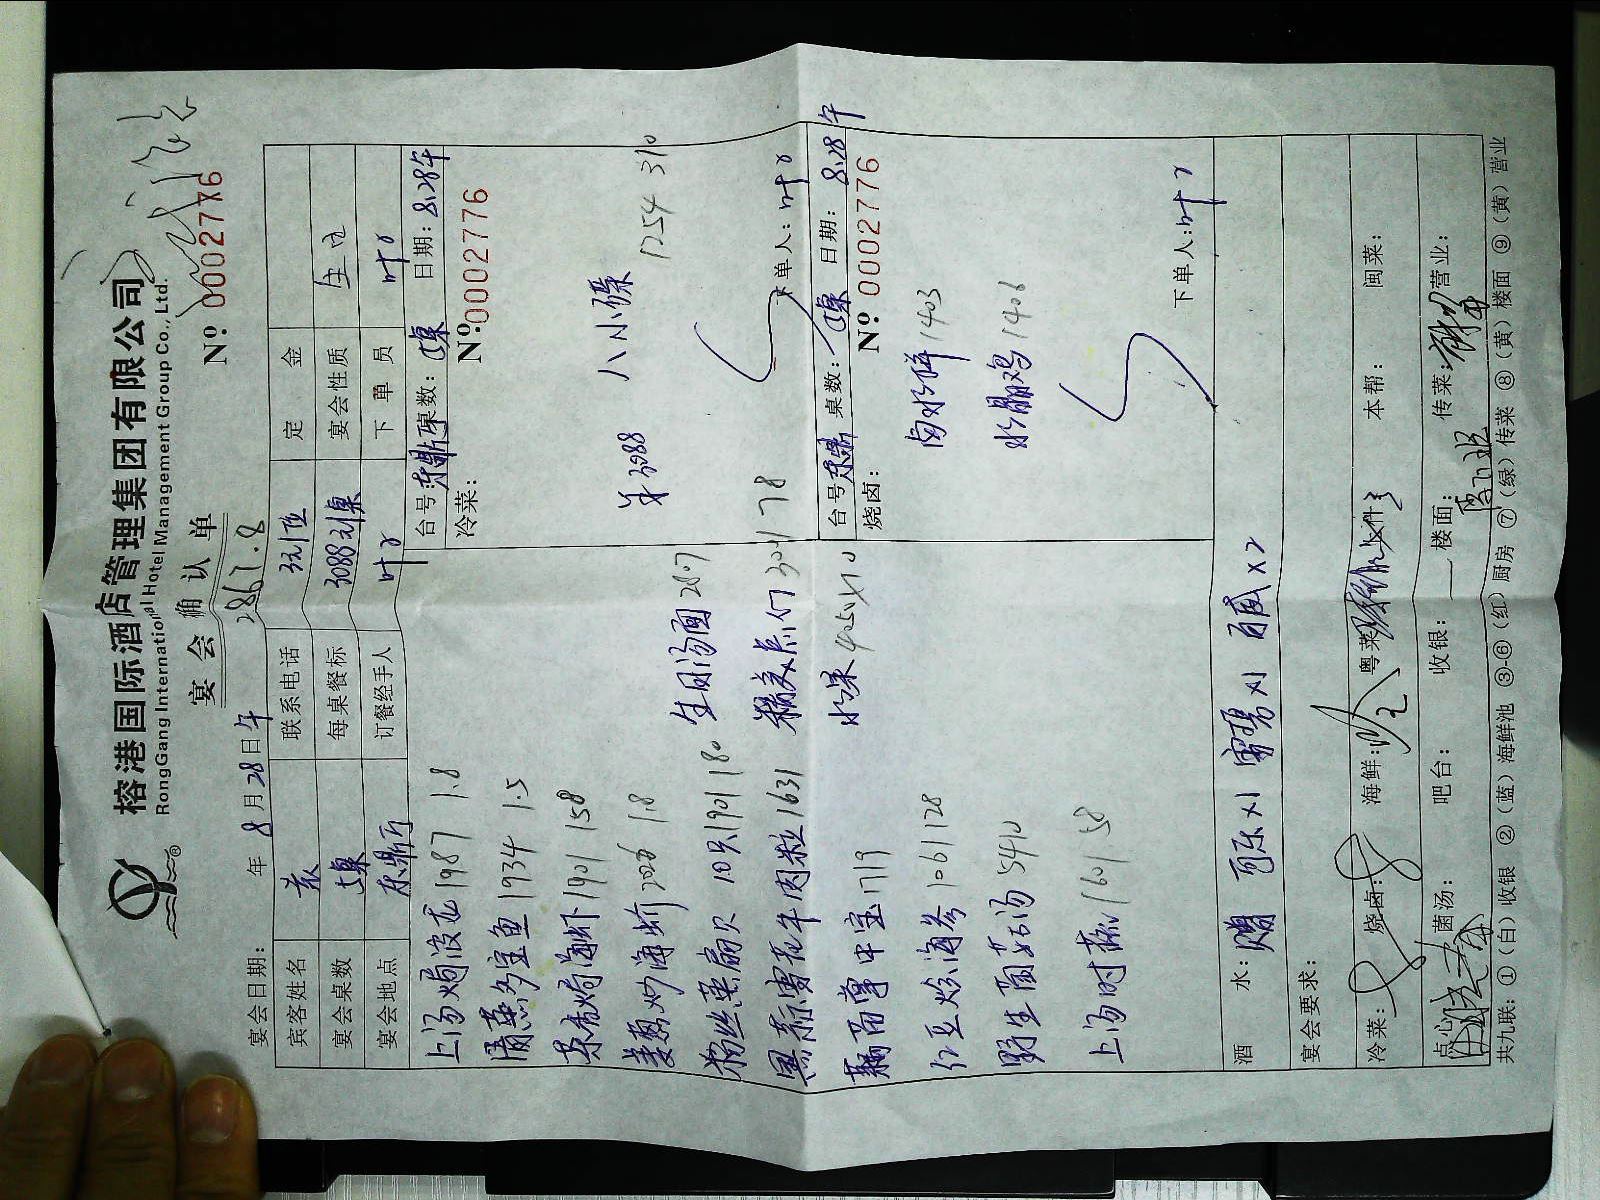 榕港国际酒店管理集团有限公司
RongGang International Hotel Management Group Co., Ltd.
宴会确认单
Nº: 0002776
宴会日期: 年 8 月 28 日 午 2867.8
宾客姓名 联系电话 定金
宴会桌数 每桌餐标 3088元/桌 宴会性质
宴会地点 东鼎厅 订餐经手人 叶 下单员 叶
上汤焗波龙 1987 1.8
清蒸多宝鱼 1934 1.5
茶香焗海虾 1901 158
姜葱炒海蟹 1.8
粉丝蒸扇贝 10只 1901 180
黑椒雪花牛肉粒 1631
1719
红豆炒海参 1061 128
野生菌菇汤 5410
上汤时蔬 1601 58
生日汤面 2807
精美点心 3041 78
水果 4050×10
台号: 东鼎 桌数: 日期: 8.28午
冷菜:
Nº: 0002776
单3088 八小碟 1254 310
下单人: 叶
台号 东鼎 桌数: 日期: 8.28午
烧卤:
Nº 0002776
卤水拼 1403
水晶鸡 1406
下单人: 叶
酒水: 赠 可乐×1 雪碧×1 百威×2
宴会要求:
冷菜: 烧卤: 海鲜: 粤菜 本帮: 闽菜:
点心 菌汤: 吧台: 收银: 楼面: 传菜: 营业:
共九联: ①(白)收银 ②(蓝)海鲜池 ③-⑥(红)厨房 ⑦(绿)传菜 ⑧(黄)楼面 ⑨(黄)营业